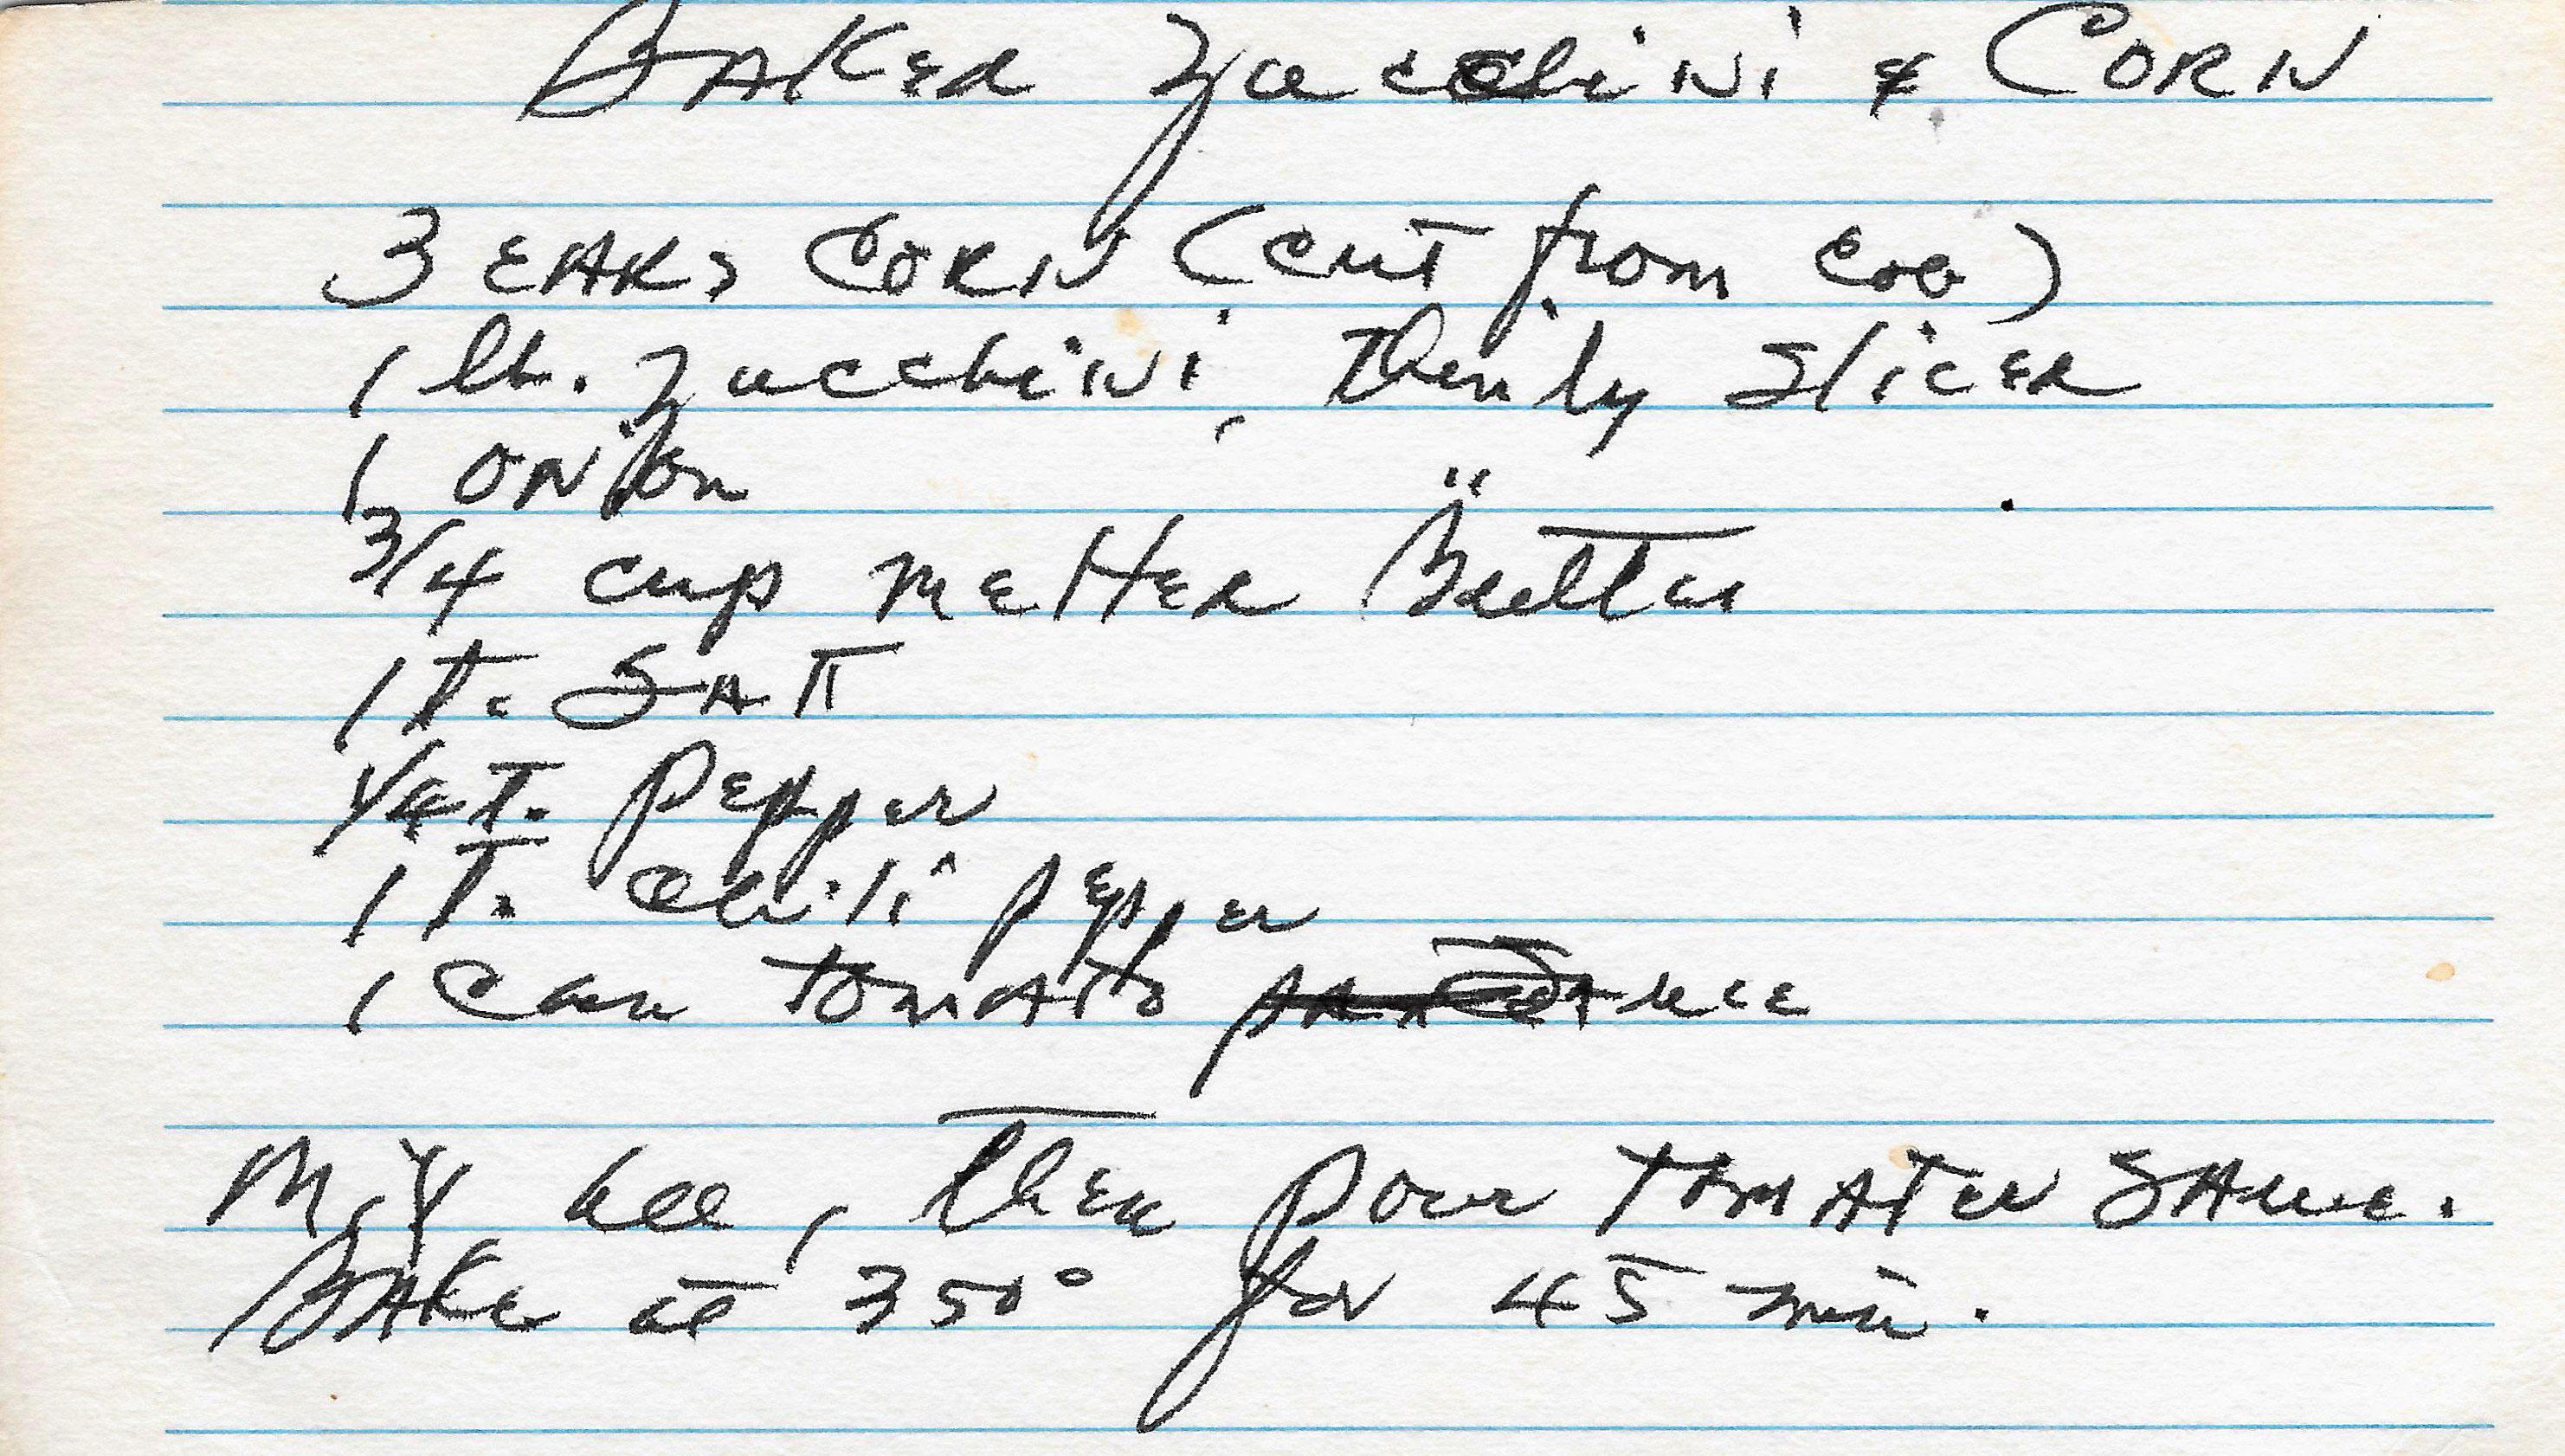 Baked Zucchini & Corn
3 ears Corn (cut from cob)
1 lb. Zucchini, thinly sliced
1 onion "
3/4 cup melted Butter
1 t. Salt
1/4 t. Pepper
1 t. chili pepper
1 can tomato
Mix all, then pour tomatoe sauce.
Bake at 350° for 45 min.